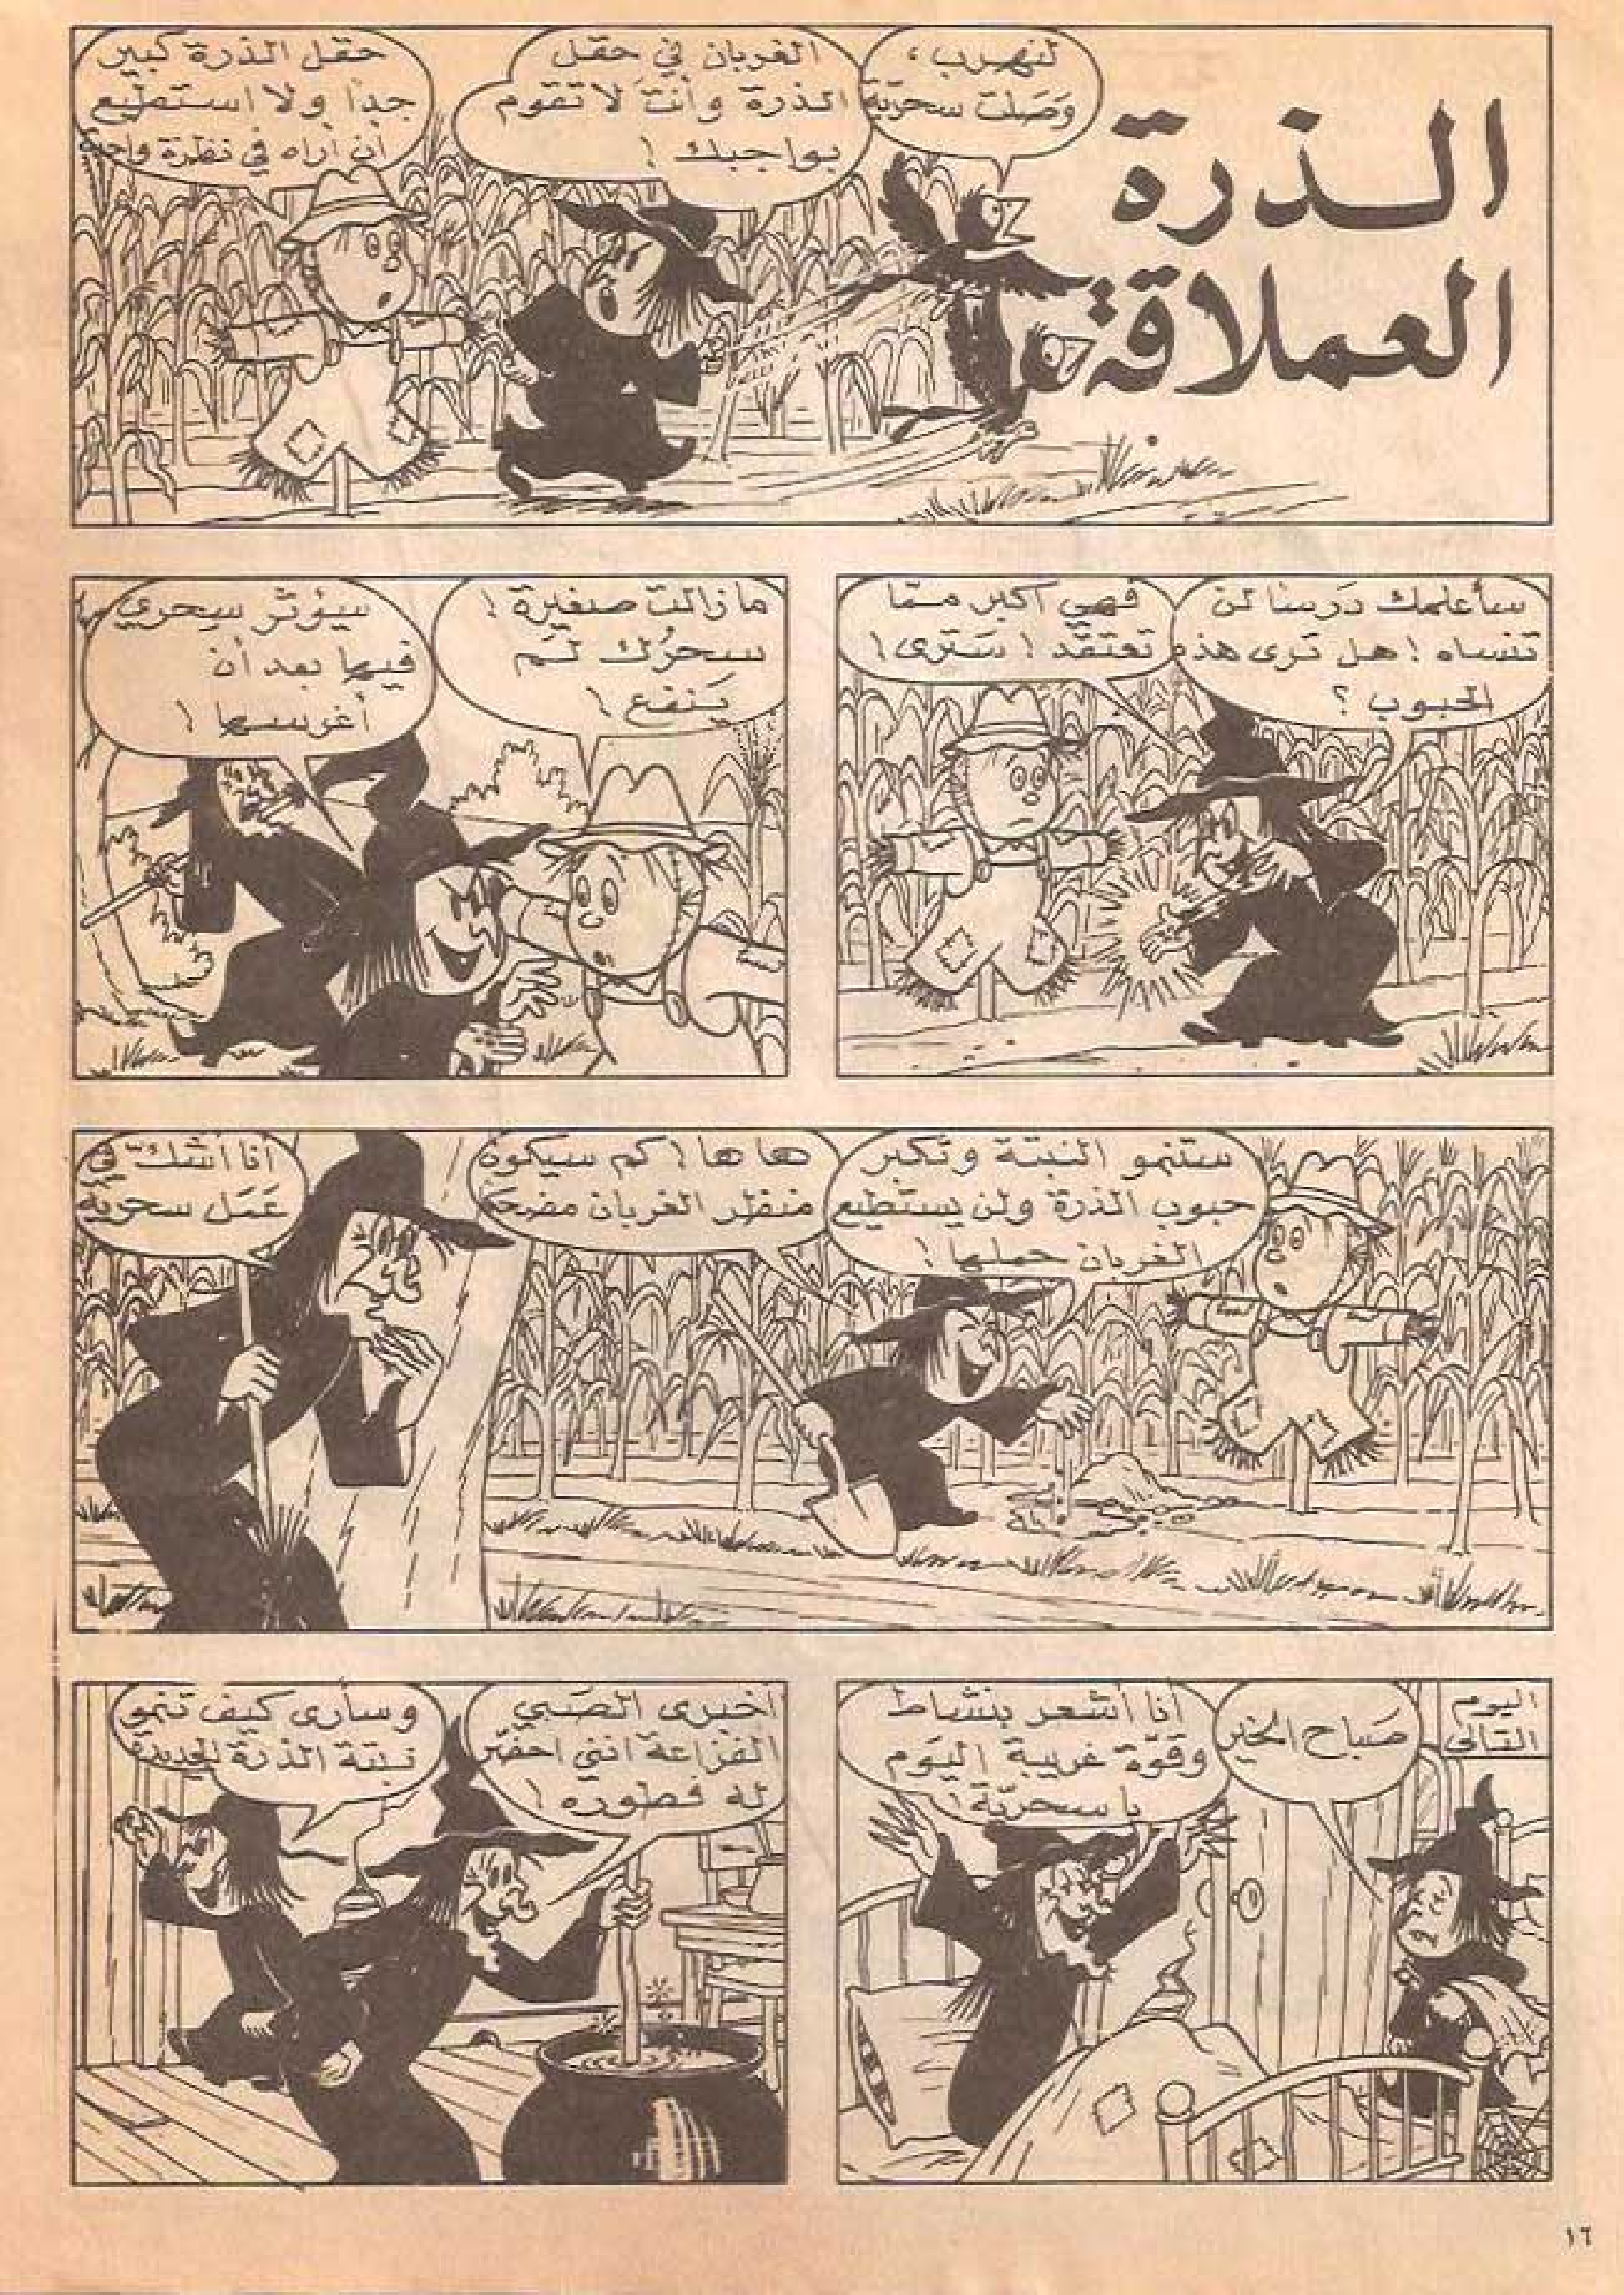 الذرة
العملاقة
لنهرب،
وَصَلت سحريّة
الغربان في حقل
الذرة وأنتَ لا تقوم
بواجبك!
حقل الذرة كبير
جداً ولا استطيع
أن أراه في نظرة واحدة
سأعلمك دَرسنا لن
تنساه! هل ترى هذه
الحبوب؟
فهي أكبر ممّا
تعتقد! سَترى!
ما زالت صغيرة!
سحرُك لَم
يَنفع!
سيؤثر سِحري
فيها بعد أن
أغرسها!
ستنمو النبتة وتكبر
حبوب الذرة ولن يستطيع
الغربان حملها!
ها ها! كم سيكون
منظر الغربان مضحكا
أنا أشك في
عَمَل سحريّة
اليوم
التالي
صَباح الخير
أنا أشعر بنشاط
وقوّة غريبة اليَوم
يا سحريّة!
أخبرى الصَبي
الفزاعة انني احضّر
له فطوره!
وسأرى كيف تنمو
نبتة الذرة الجديدة
١٦